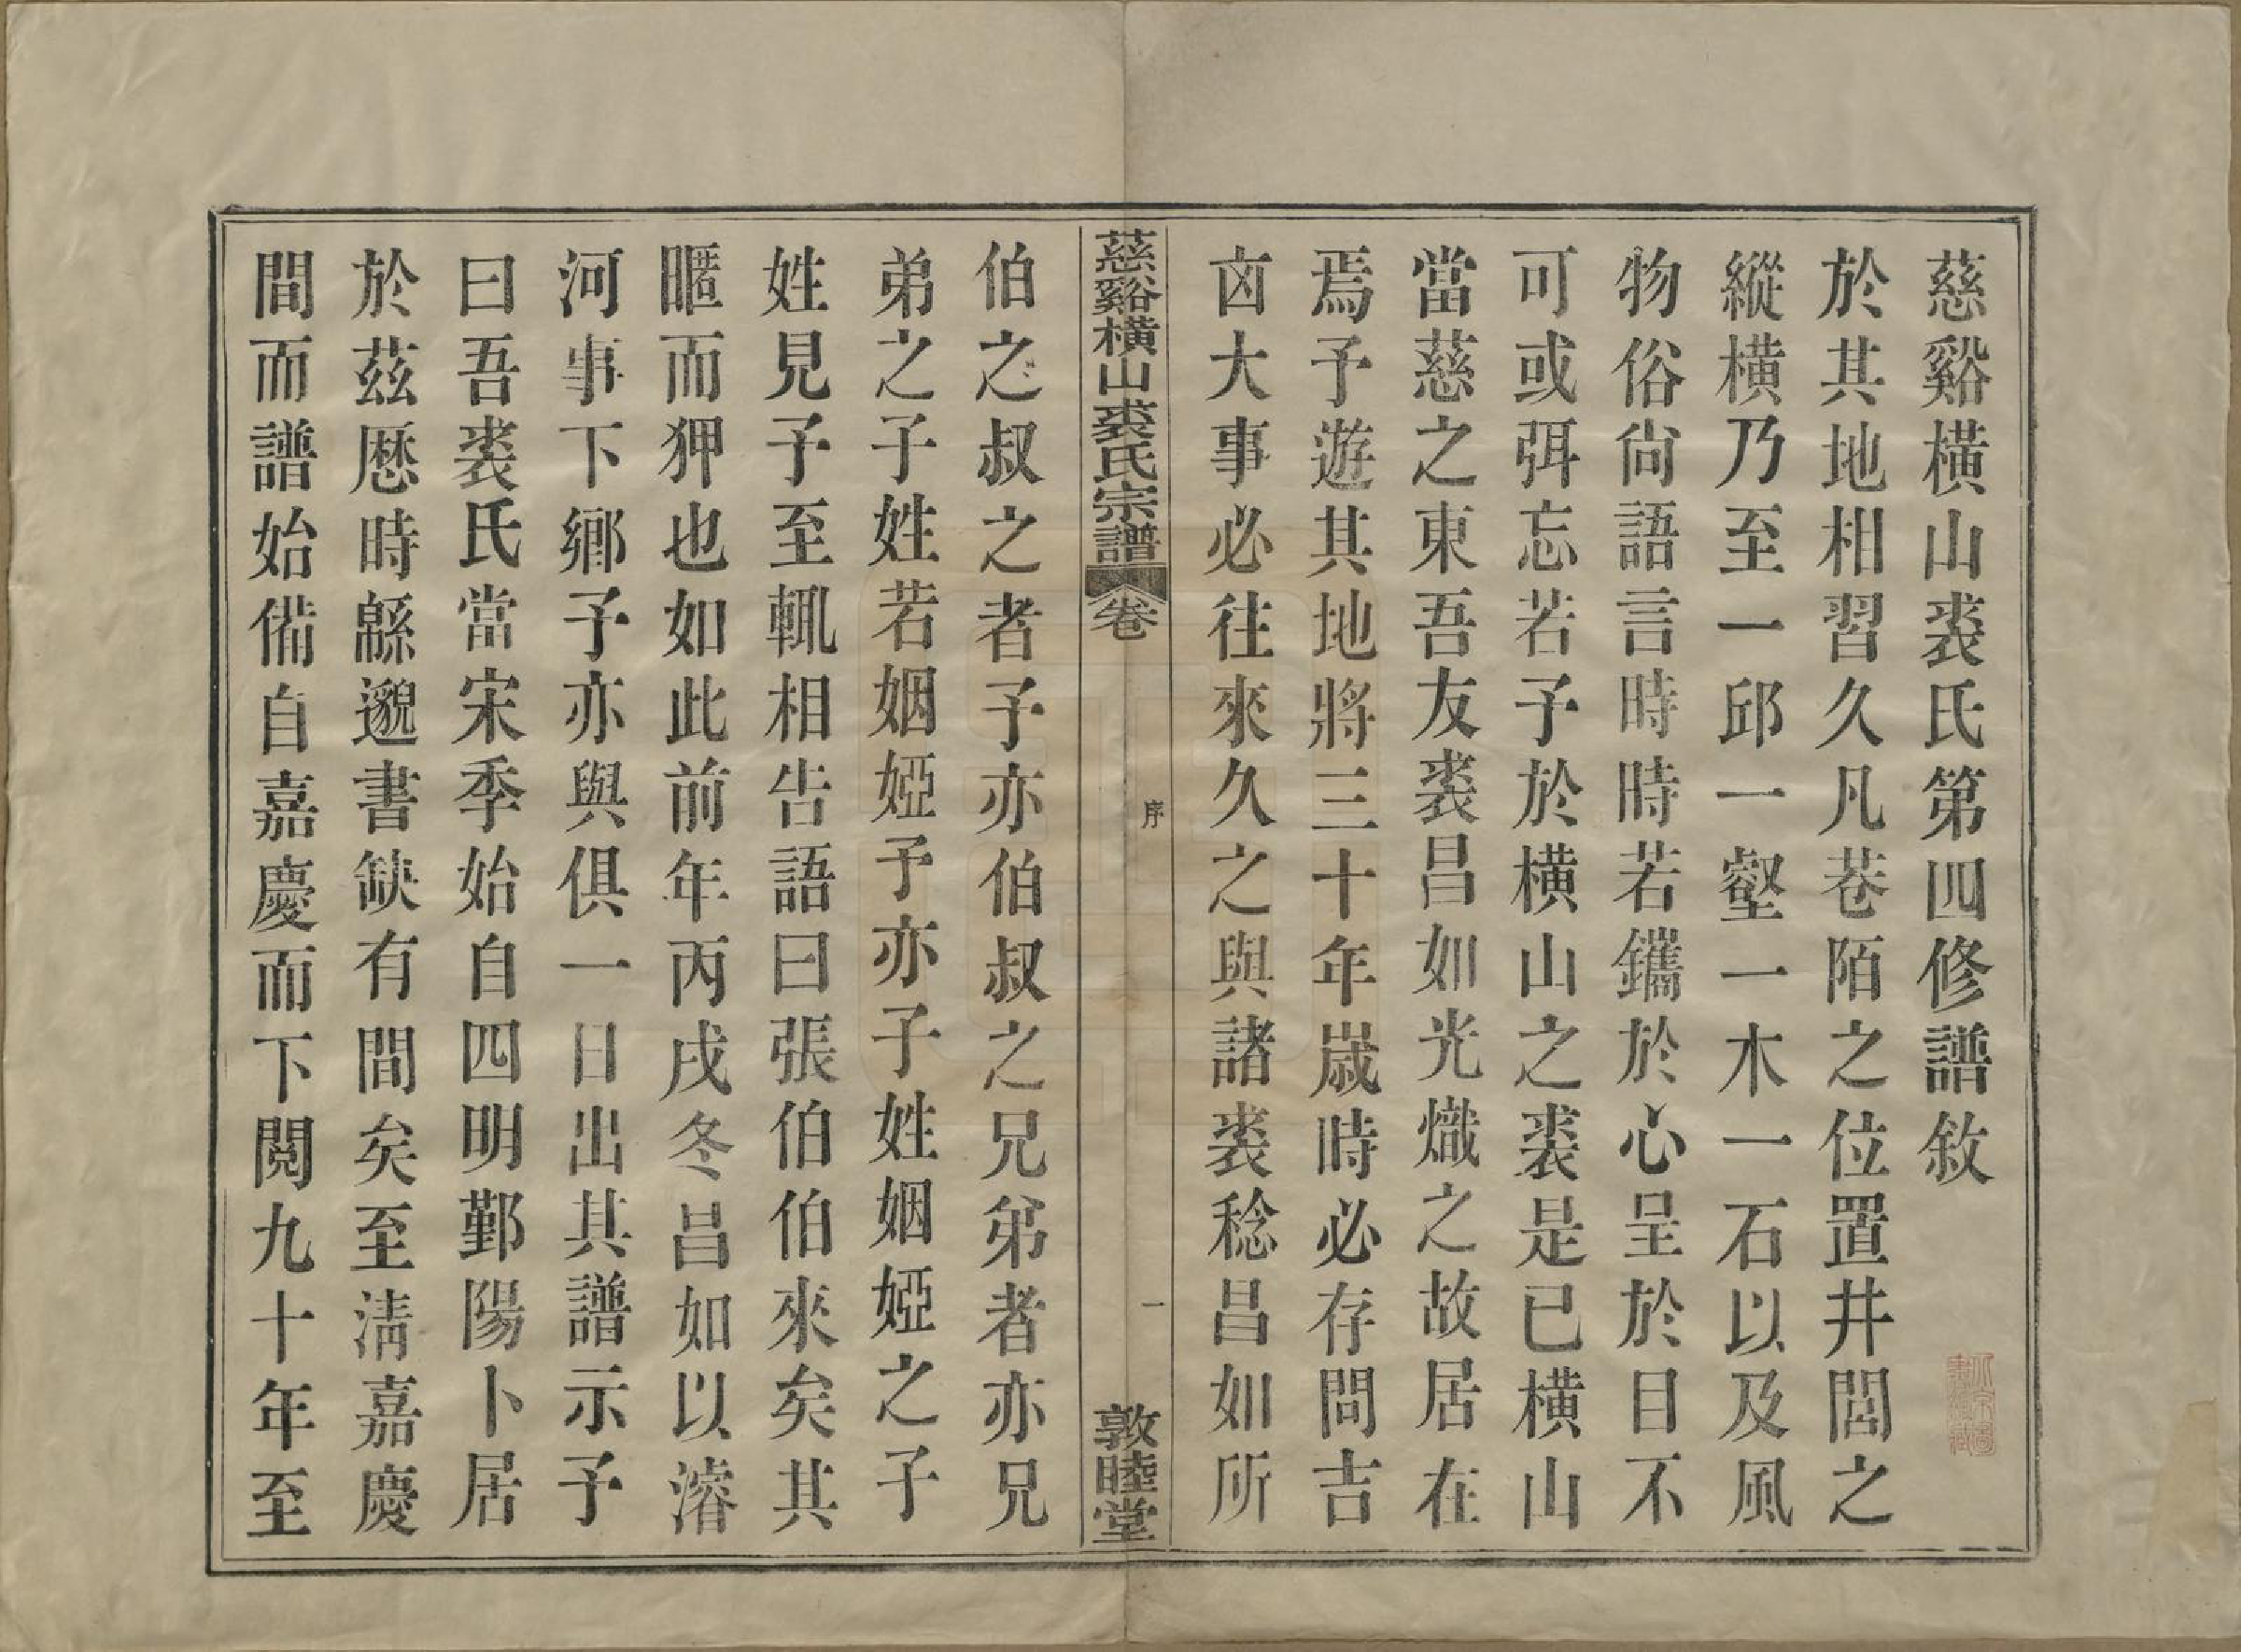 慈谿橫山裘氏第四修譜敘
於其地相習久凡巷陌之位置井閭之
縱橫乃至一邱一壑一木一石以及風
物俗尙語言時時若鑴於心呈於目不
可或弭忘若予於橫山之裘是已橫山
當慈之東吾友裘昌如光熾之故居在
焉予遊其地將三十年歲時必存問吉
凶大事必往來久之與諸裘稔昌如所
慈谿橫山裘氏宗譜 卷 序 一 敦睦堂
伯之叔之者予亦伯叔之兄弟者亦兄
弟之子姓若姻婭予亦子姓姻婭之子
姓見予至輒相告語曰張伯伯來矣其
暱而狎也如此前年丙戌冬昌如以濬
河事下鄉予亦與俱一日出其譜示予
曰吾裘氏當宋季始自四明鄞陽卜居
於茲厯時緜邈書缺有間矣至淸嘉慶
間而譜始備自嘉慶而下閱九十年至